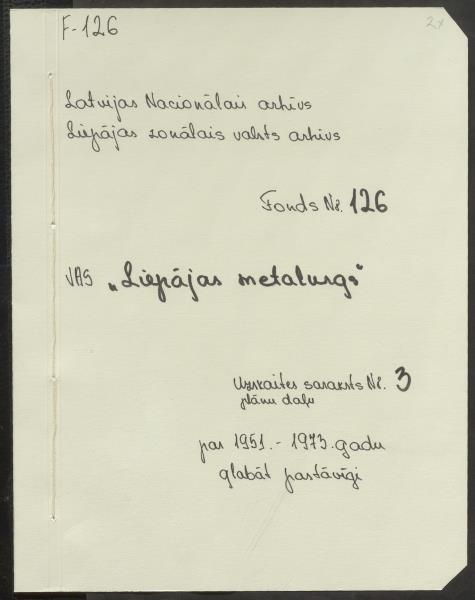 F-126
2x
Latvijas Nacionālais arhīvs
Liepājas zonālais valsts arhīvs
Fonds Nr. 126
VAS „Liepājas metalurgs"
Uzskaites saraksts Nr. 3
plānu daļu
par 1951.-1973.gadu
glabāt pastāvīgi